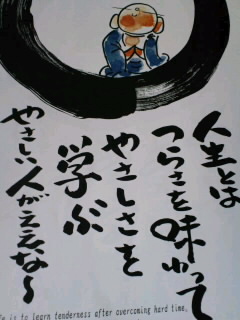 人生とは
つらさを味わって
やさしさを
学ぶ
やさしい人がええな〜
is to learn tenderness after overcoming hard time.